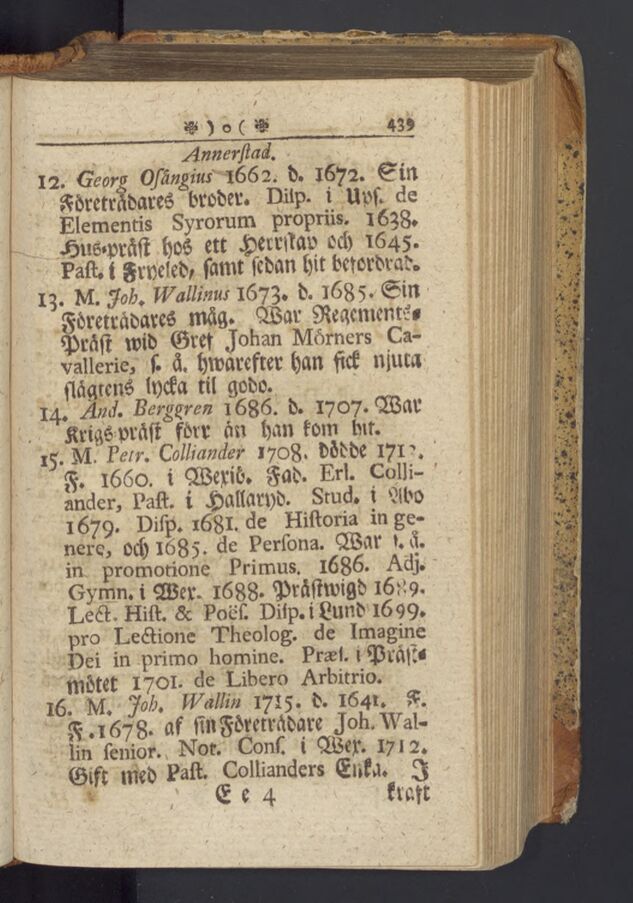 ❉ ) o ( ❉ 439
Annerstad.
12. Georg Osängius 1662. d. 1672. Sin
Företrädares broder. Disp. i Ups. de
Elementis Syrorum propriis. 1638.
Hus-präst hos ett Herrskap och 1645.
Past. i Fryeled, samt sedan hit befordrad.
13. M. Joh. Wallinus 1673. d. 1685. Sin
Företrädares måg. War Regements-
Präst wid Gref Johan Mörners Ca-
vallerie, s. å. hwarefter han fick njuta
slägtens lycka til godo.
14. And. Berggren 1686. d. 1707. War
Krigs-präst förr än han kom hit.
15. M. Petr. Colliander 1708. dödde
F. 1660. i Wexiö. Fad. Erl. Colli-
ander, Past. i Hallaryd. Stud. i Åbo
1679. Disp. 1681. de Historia in ge-
nere, och 1685. de Persona. War s. å.
in promotione Primus. 1686. Adj.
Gymn. i Wex. 1688. Prästwigd 1689.
Lect. Hist. & Poës. Disp. i Lund 1699.
pro Lectione Theolog. de Imagine
Dei in primo homine. Præs. i Präst-
mötet 1701. de Libero Arbitrio.
16. M. Joh. Wallin 1715. d. 1641. F.
F. 1678. af sin Företrädare Joh. Wal-
lin senior. Not. Cons. i Wex. 1712.
Gift med Past. Collianders Enka. I
E e 4 kraft